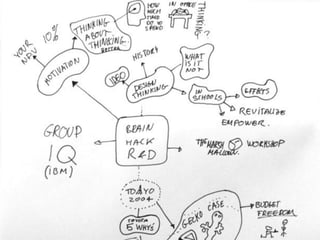 HOW
MUCH
TAKE
DO TO
SPEND
IN OFFICE
THINKING
?
10%
YOUR
NPV
THINKING
ABOUT
THINKING
MOTIVATION
HISTORY
WHAT
IS IT
NOT
IDEO
DESIGN
THINKING
IN SCHOOLS
REVITALIZE
EMPOWER.
GROUP
IQ
(IBM)
BRAIN
HACK
R&D
THE MARSH
WORKSHOP
TOKYO
2004
TOYOTA
5 WHYS
GECKO CASE
BUDGET
FREEDOM